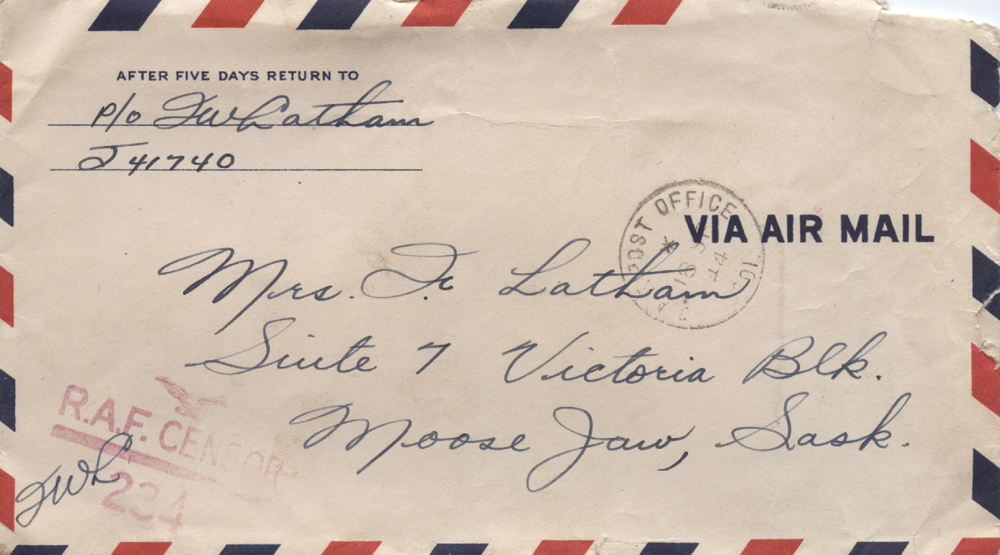 AFTER FIVE DAYS RETURN TO
P/o FW Latham
J 41740
POST OFFICE
VIA AIR MAIL
Mrs. F. Latham
Suite 7 Victoria Blk.
Moose Jaw, Sask.
R.A.F. CENSOR
234
FWL